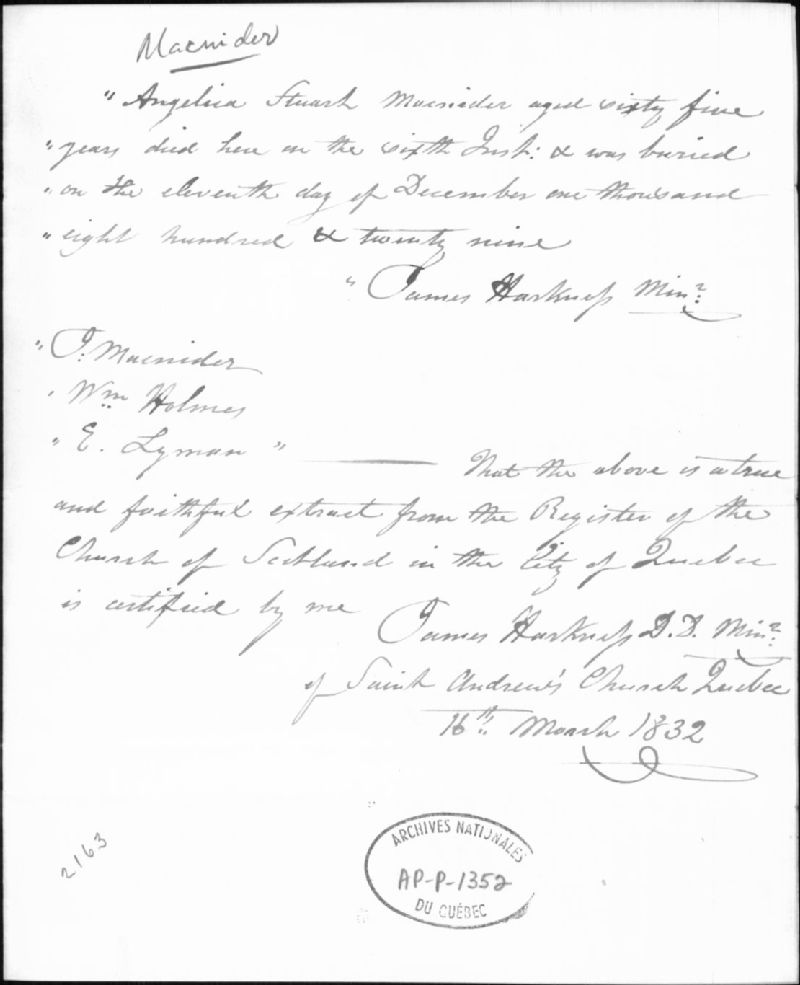 Macnider
" Angelica Stuart Macnider aged sixty five
" years died here on the sixth Inst: & was buried
" on the eleventh day of December one thousand
" eight hundred & twenty nine
" James Harkness Minr:
" T. Macnider
" Wm Holmes
" E. Lyman " ——— That the above is a true
and faithful extract from the Register of the
Church of Scotland in the City of Quebec
is certified by me
James Harkness D.D. Minr:
of Saint Andrew's Church Quebec
16th. March 1832
2163
ARCHIVES NATIONALES
AP-P-1352
DU QUÉBEC